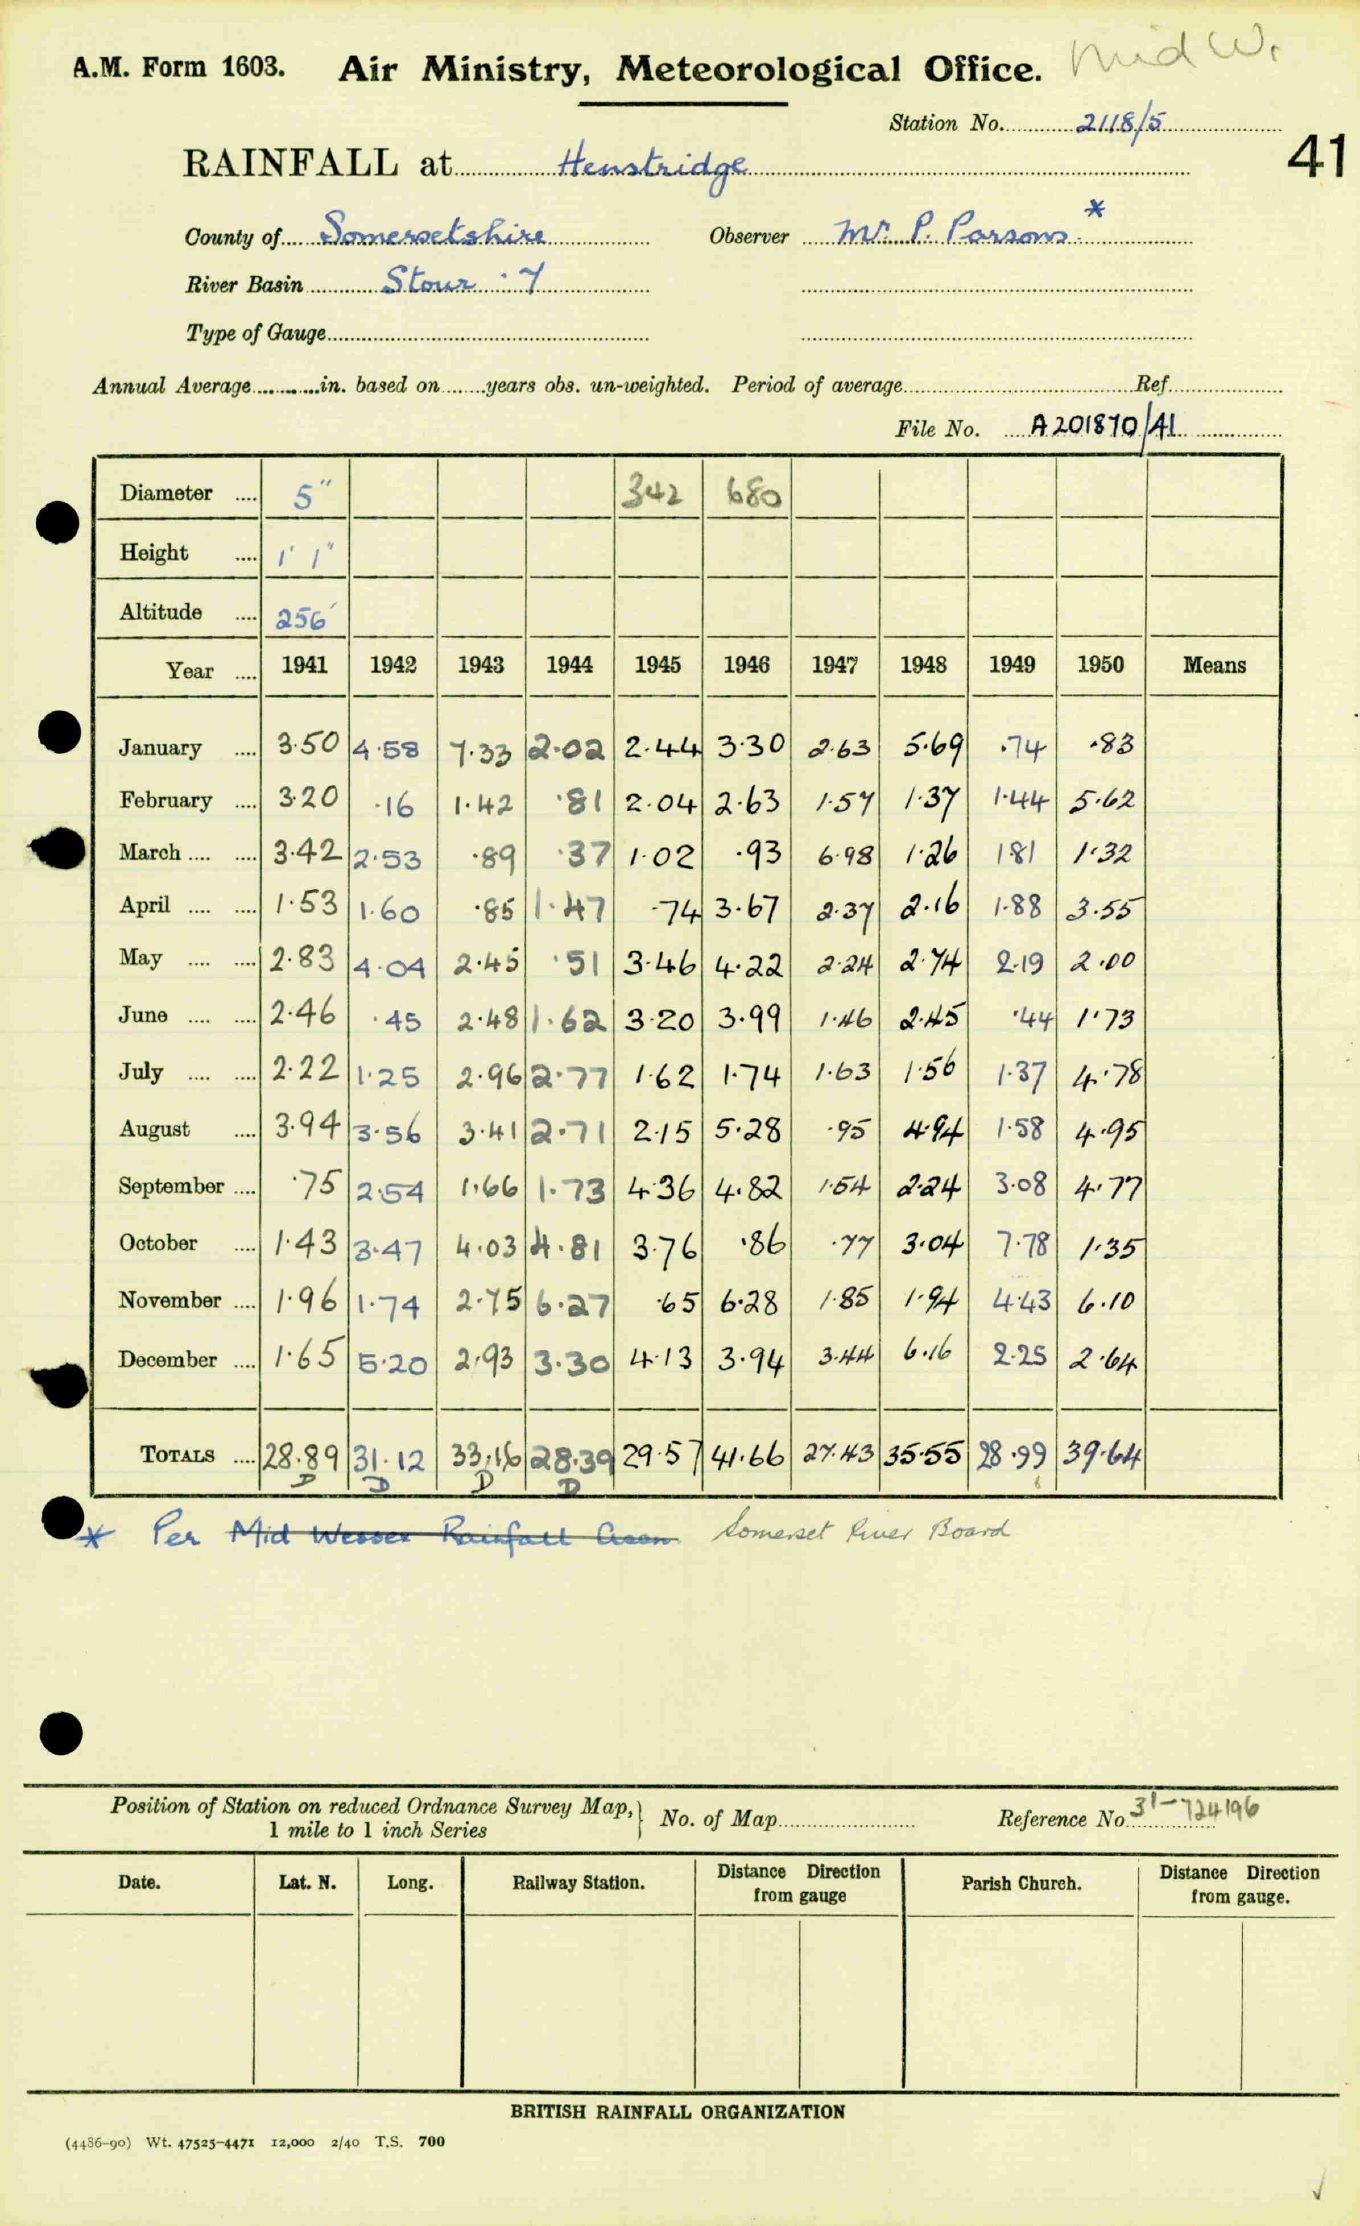 A.M. Form 1603. Air Ministry, Meteorological Office. Mid W.
Station No. 2118/5
41
RAINFALL at Henstridge
County of Somersetshire Observer Mr. P. Parsons. *
River Basin Stour · 7
Type of Gauge
Annual Average in. based on years obs. un-weighted. Period of average Ref.
File No. A201870/41
Diameter 5" 342 680
Height 1' 1"
Altitude 256'
Year 1941 1942 1943 1944 1945 1946 1947 1948 1949 1950 Means
January 3.50 4.58 7.33 2.02 2.44 3.30 2.63 5.69 .74 .83
February 3.20 .16 1.42 .81 2.04 2.63 1.57 1.37 1.44 5.62
March 3.42 2.53 .89 .37 1.02 .93 6.98 1.26 181 1.32
April 1.53 1.60 .85 1.47 .74 3.67 2.37 2.16 1.88 3.55
May 2.83 4.04 2.45 .51 3.46 4.22 2.24 2.74 2.19 2.00
June 2.46 .45 2.48 1.62 3.20 3.99 1.46 2.45 .44 1.73
July 2.22 1.25 2.96 2.77 1.62 1.74 1.63 1.56 1.37 4.78
August 3.94 3.56 3.41 2.71 2.15 5.28 .95 4.94 1.58 4.95
September .75 2.54 1.66 1.73 4.36 4.82 1.54 2.24 3.08 4.77
October 1.43 3.47 4.03 4.81 3.76 .86 .77 3.04 7.78 1.35
November 1.96 1.74 2.75 6.27 .65 6.28 1.85 1.94 4.43 6.10
December 1.65 5.20 2.93 3.30 4.13 3.94 3.44 6.16 2.25 2.64
TOTALS 28.89 31.12 33.16 28.39 29.57 41.66 27.43 35.55 28.99 39.64
D D D D
* Per Mid Wessex Rainfall Assn. Somerset River Board
Position of Station on reduced Ordnance Survey Map, 1 mile to 1 inch Series } No. of Map Reference No 31-724196
Date. Lat. N. Long. Railway Station. Distance Direction from gauge Parish Church. Distance Direction from gauge.
BRITISH RAINFALL ORGANIZATION
(4486-90) Wt. 47525-4471 12,000 2/40 T.S. 700